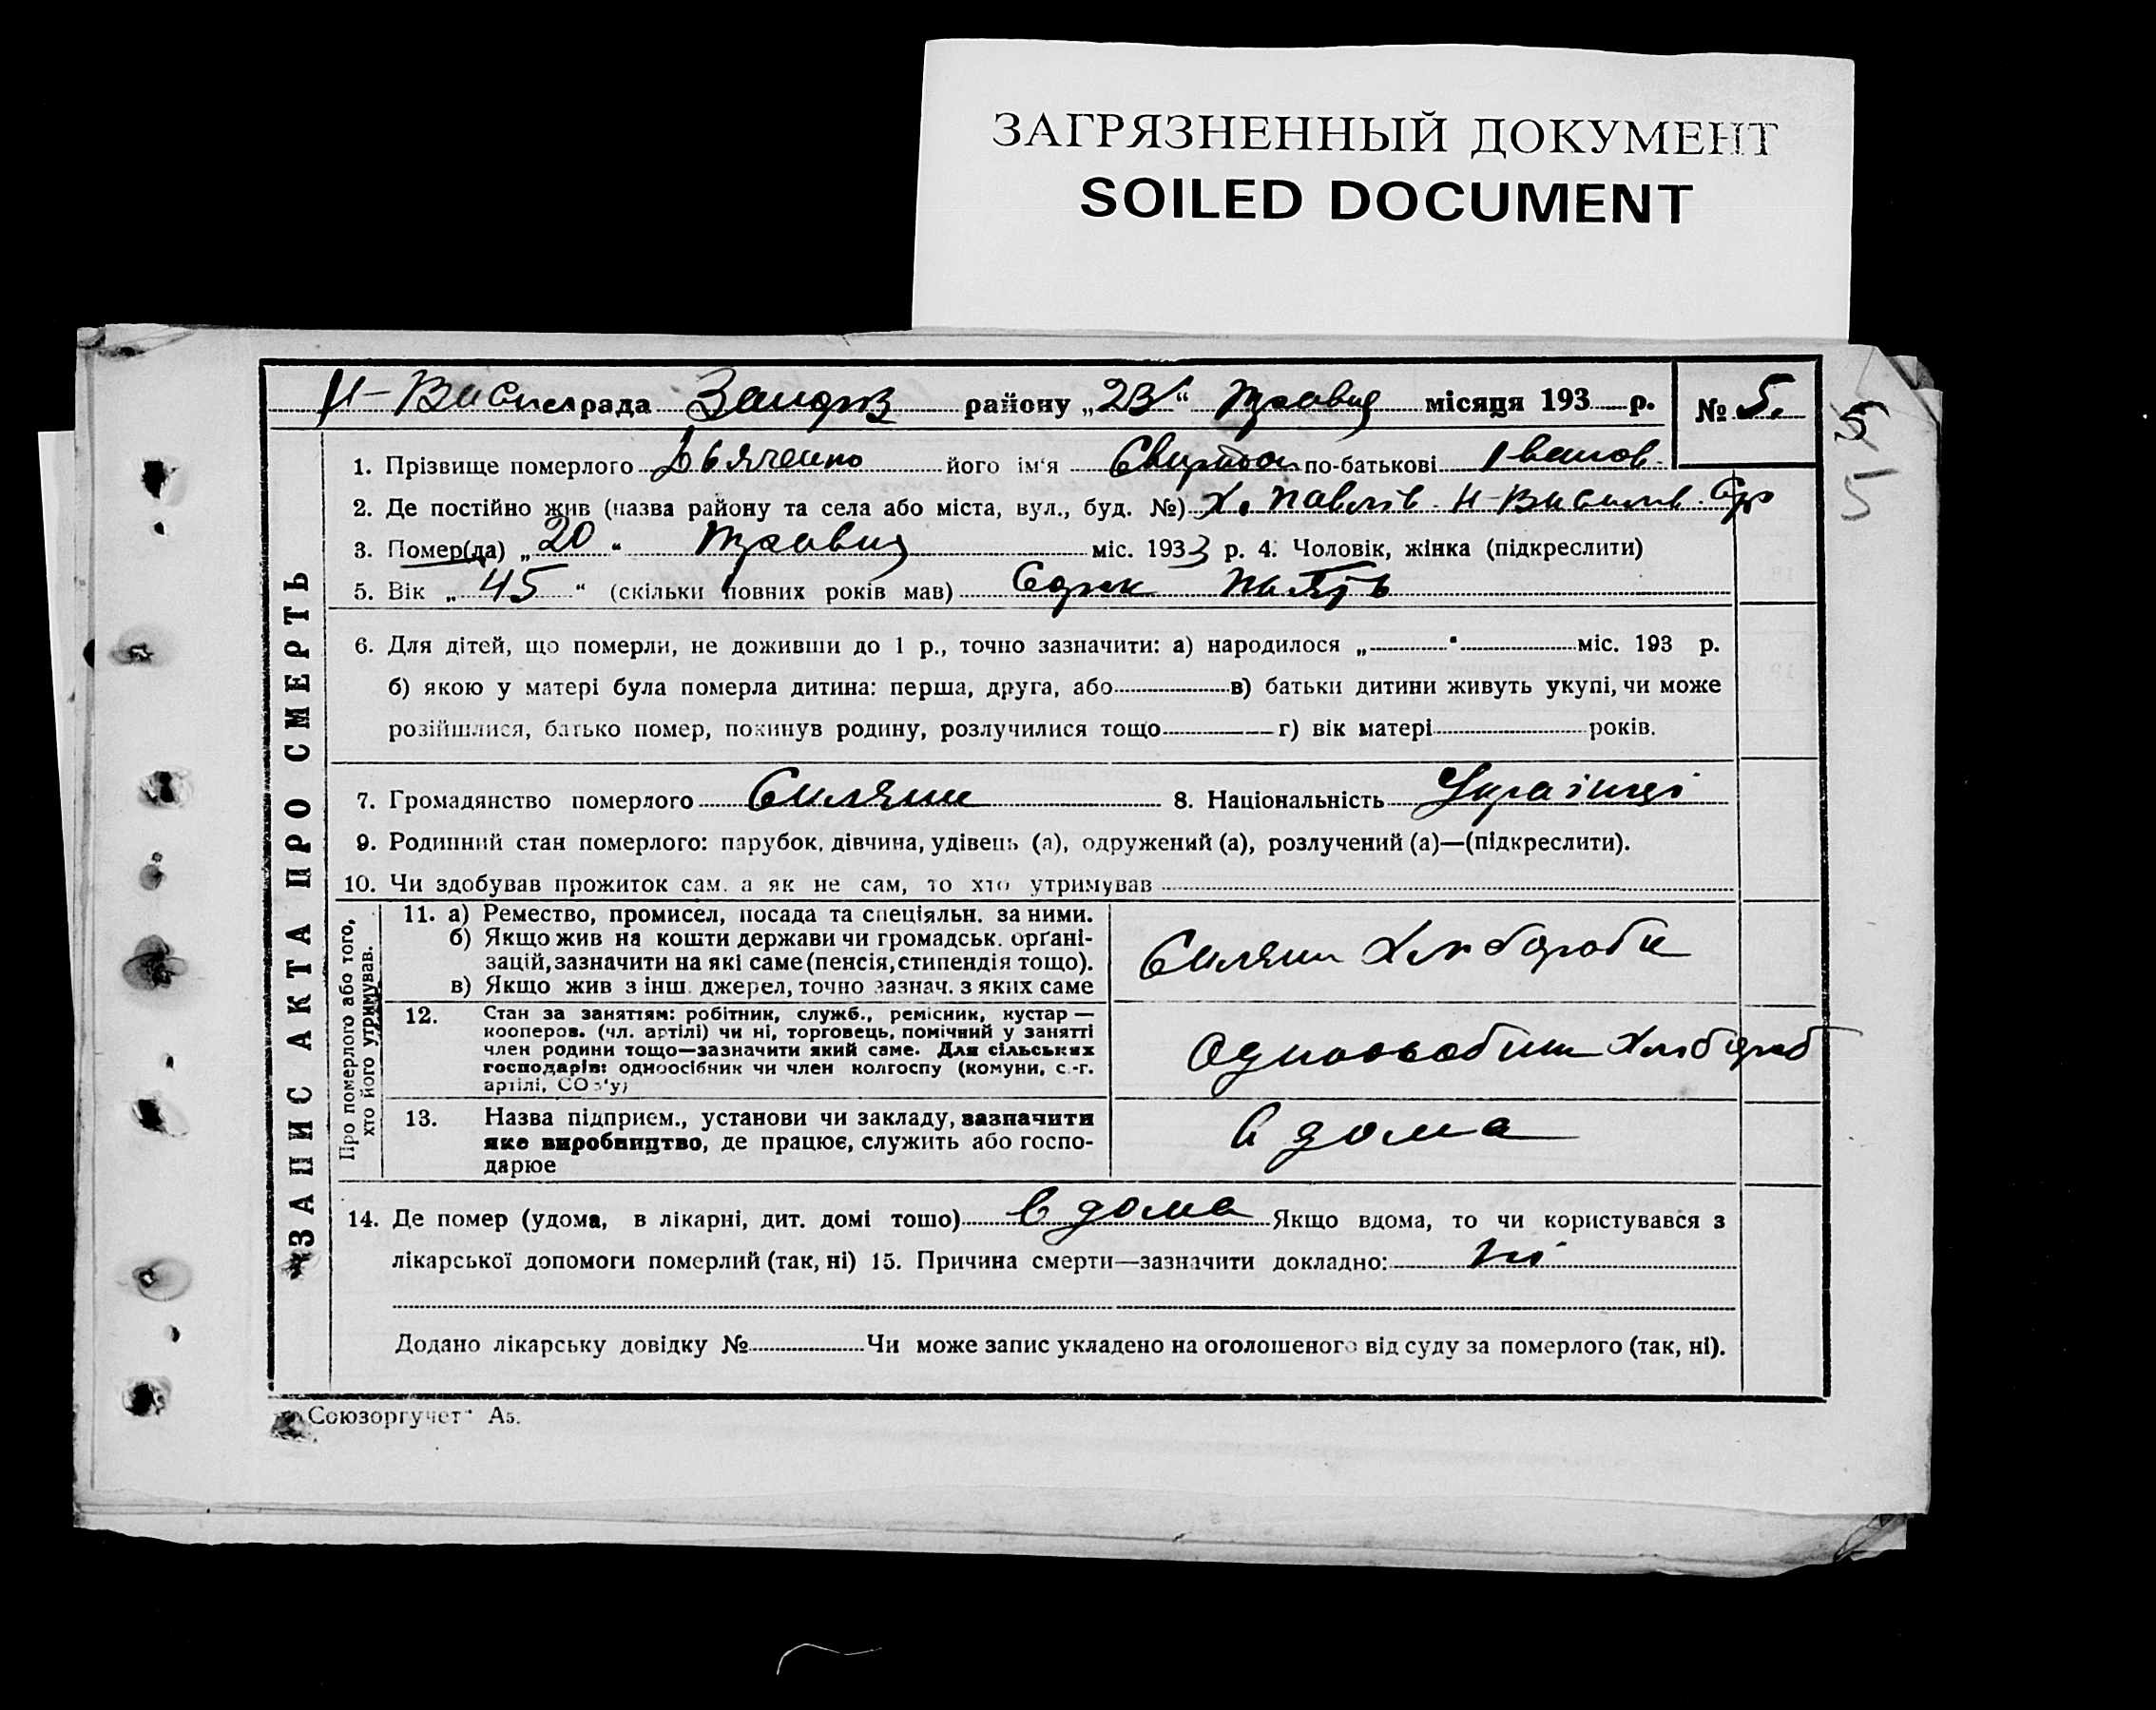 ЗАГРЯЗНЕННЫЙ ДОКУМЕНТ
SOILED DOCUMENT
рада району „23“ Травця місяця 193 р. № 5.
5
5
1. Прізвище померлого Дьяченко його ім'я по-батькові Іванов
2. Де постійно жив (назва району та села або міста, вул., буд. №) Х. Павлів Н-Васил
3. Помер(ла) „20“ Травця міс. 1933 р. 4. Чоловік, жінка (підкреслити)
5. Вік „45“ (скільки повних років мав) Сорок Пять
6. Для дітей, що померли, не доживши до 1 р., точно зазначити: а) народилося „ “ міс. 193 р.
б) якою у матері була померла дитина: перша, друга, або в) батьки дитини живуть укупі, чи може
розійшлися, батько помер, покинув родину, розлучилися тощо г) вік матері років.
7. Громадянство померлого Силяни 8. Національність Украінці
9. Родинний стан померлого: парубок, дівчина, удівець (а), одружений (а), розлучений (а)—(підкреслити).
10. Чи здобував прожиток сам, а як не сам, то хто утримував
11. а) Ремество, промисел, посада та спеціяльн. за ними.
б) Якщо жив на кошти держави чи громадськ. органі-
зацій, зазначити на які саме (пенсія, стипендія тощо).
в) Якщо жив з інш. джерел, точно зазнач. з яких саме
Силяни Хліборби
12. Стан за заняттям: робітник, служб., ремісник, кустар —
кооперов. (чл. артілі) чи ні, торговець, помічний у занятті
член родини тощо—зазначити який саме. Для сільських
господарів: одноосібник чи член колгоспу (комуни, с.-г.
артілі, СОЗ'у)
Хлібороб
13. Назва підприєм., установи чи закладу, зазначити
яке виробництво, де працює, служить або госпо-
дарює
в дома
14. Де помер (удома, в лікарні, дит. домі тощо) в дома Якщо вдома, то чи користувався з
лікарської допомоги померлий (так, ні) 15. Причина смерти—зазначити докладно: ні
Додано лікарську довідку № Чи може запис укладено на оголошеного від суду за померлого (так, ні).
ЗАПИС АКТА ПРО СМЕРТЬ
Про померлого або того,
хто його утримував.
„Союзоргучет“ А5.